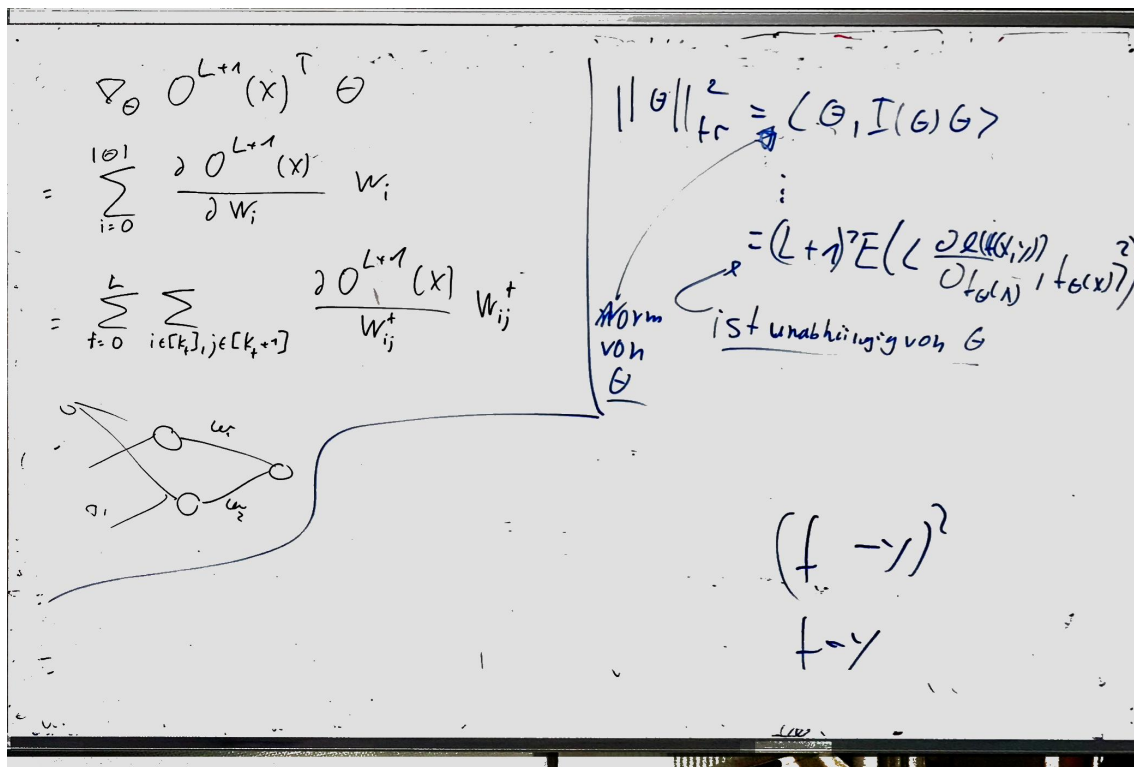 ∇_θ O^{L+1}(x)^T θ
= Σ_{i=0}^{|θ|} ∂O^{L+1}(x) / ∂W_i W_i
= Σ_{t=0}^{L} Σ_{i∈[k_t], j∈[k_t+1]} ∂O^{L+1}(x) / W_{ij}^t W_{ij}^t
w_1
w_2
||θ||_{fr}^2 = ⟨θ, I(θ)θ⟩
⋮
= (L+1)^2 E(⟨ ∂l(f(x,y)) / ∂f_θ(x) , f_θ(x)⟩^2)
Norm
von
θ
ist unabhängig von θ
(f - y)^2
f - y